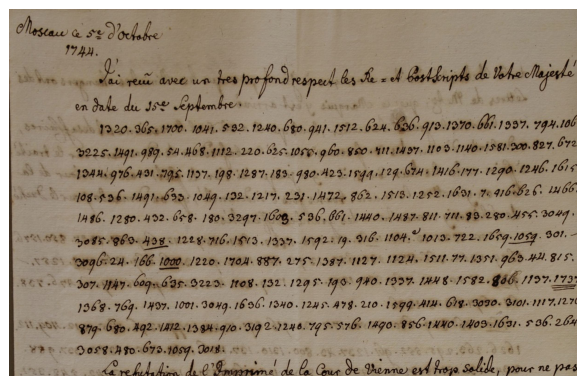 Moscau ce 5e d'Octobre
1744.
J'ai reçû avec un tres profond respect les Re = et Postscripts de Votre Majesté
en date du 15e Septembre.
1320. 365. 1700. 1041. 532. 1240. 680. 941. 1512. 624. 636. 913. 1370. 661. 1337. 794. 106
3225. 1491. 989. 54. 468. 1112. 220. 625. 1055. 960. 850. 711. 1437. 1103. 1140. 1581. 300. 827. 672
1344. 976. 431. 795. 1137. 198. 1287. 183. 980. 423. 1599. 129. 674. 1416. 177. 1290. 1246. 1615
108. 536. 1491. 633. 1049. 132. 1217. 231. 1472. 862. 1513. 1252. 1631. 7. 416. 626. 1466
1486. 1280. 432. 658. 180. 3297. 1603. 536. 661. 1440. 1487. 811. 711. 83. 280. 455. 3049.
3085. 863. 438. 1228. 716. 1513. 1337. 1592. 19. 316. 1104. 1013. 722. 1659. 1059. 301.
3096. 24. 166. 1000. 1220. 1704. 887. 275. 1387. 1127. 1124. 1511. 77. 1351. 963. 44. 815.
307. 1147. 609. 635. 3223. 1108. 132. 1295. 193. 940. 1337. 1448. 1582. 866. 1137. 1737
1368. 769. 1437. 1001. 3049. 1636. 1340. 1245. 478. 210. 1599. 414. 618. 3070. 3101. 1117. 1270
879. 680. 492. 1412. 1384. 910. 3192. 1240. 795. 576. 1490. 856. 1440. 1403. 1631. 536. 264
3058. 480. 673. 1059. 3018.
La refutation de l'Imprimé de la Cour de Vienne est trop solide, pour ne pas